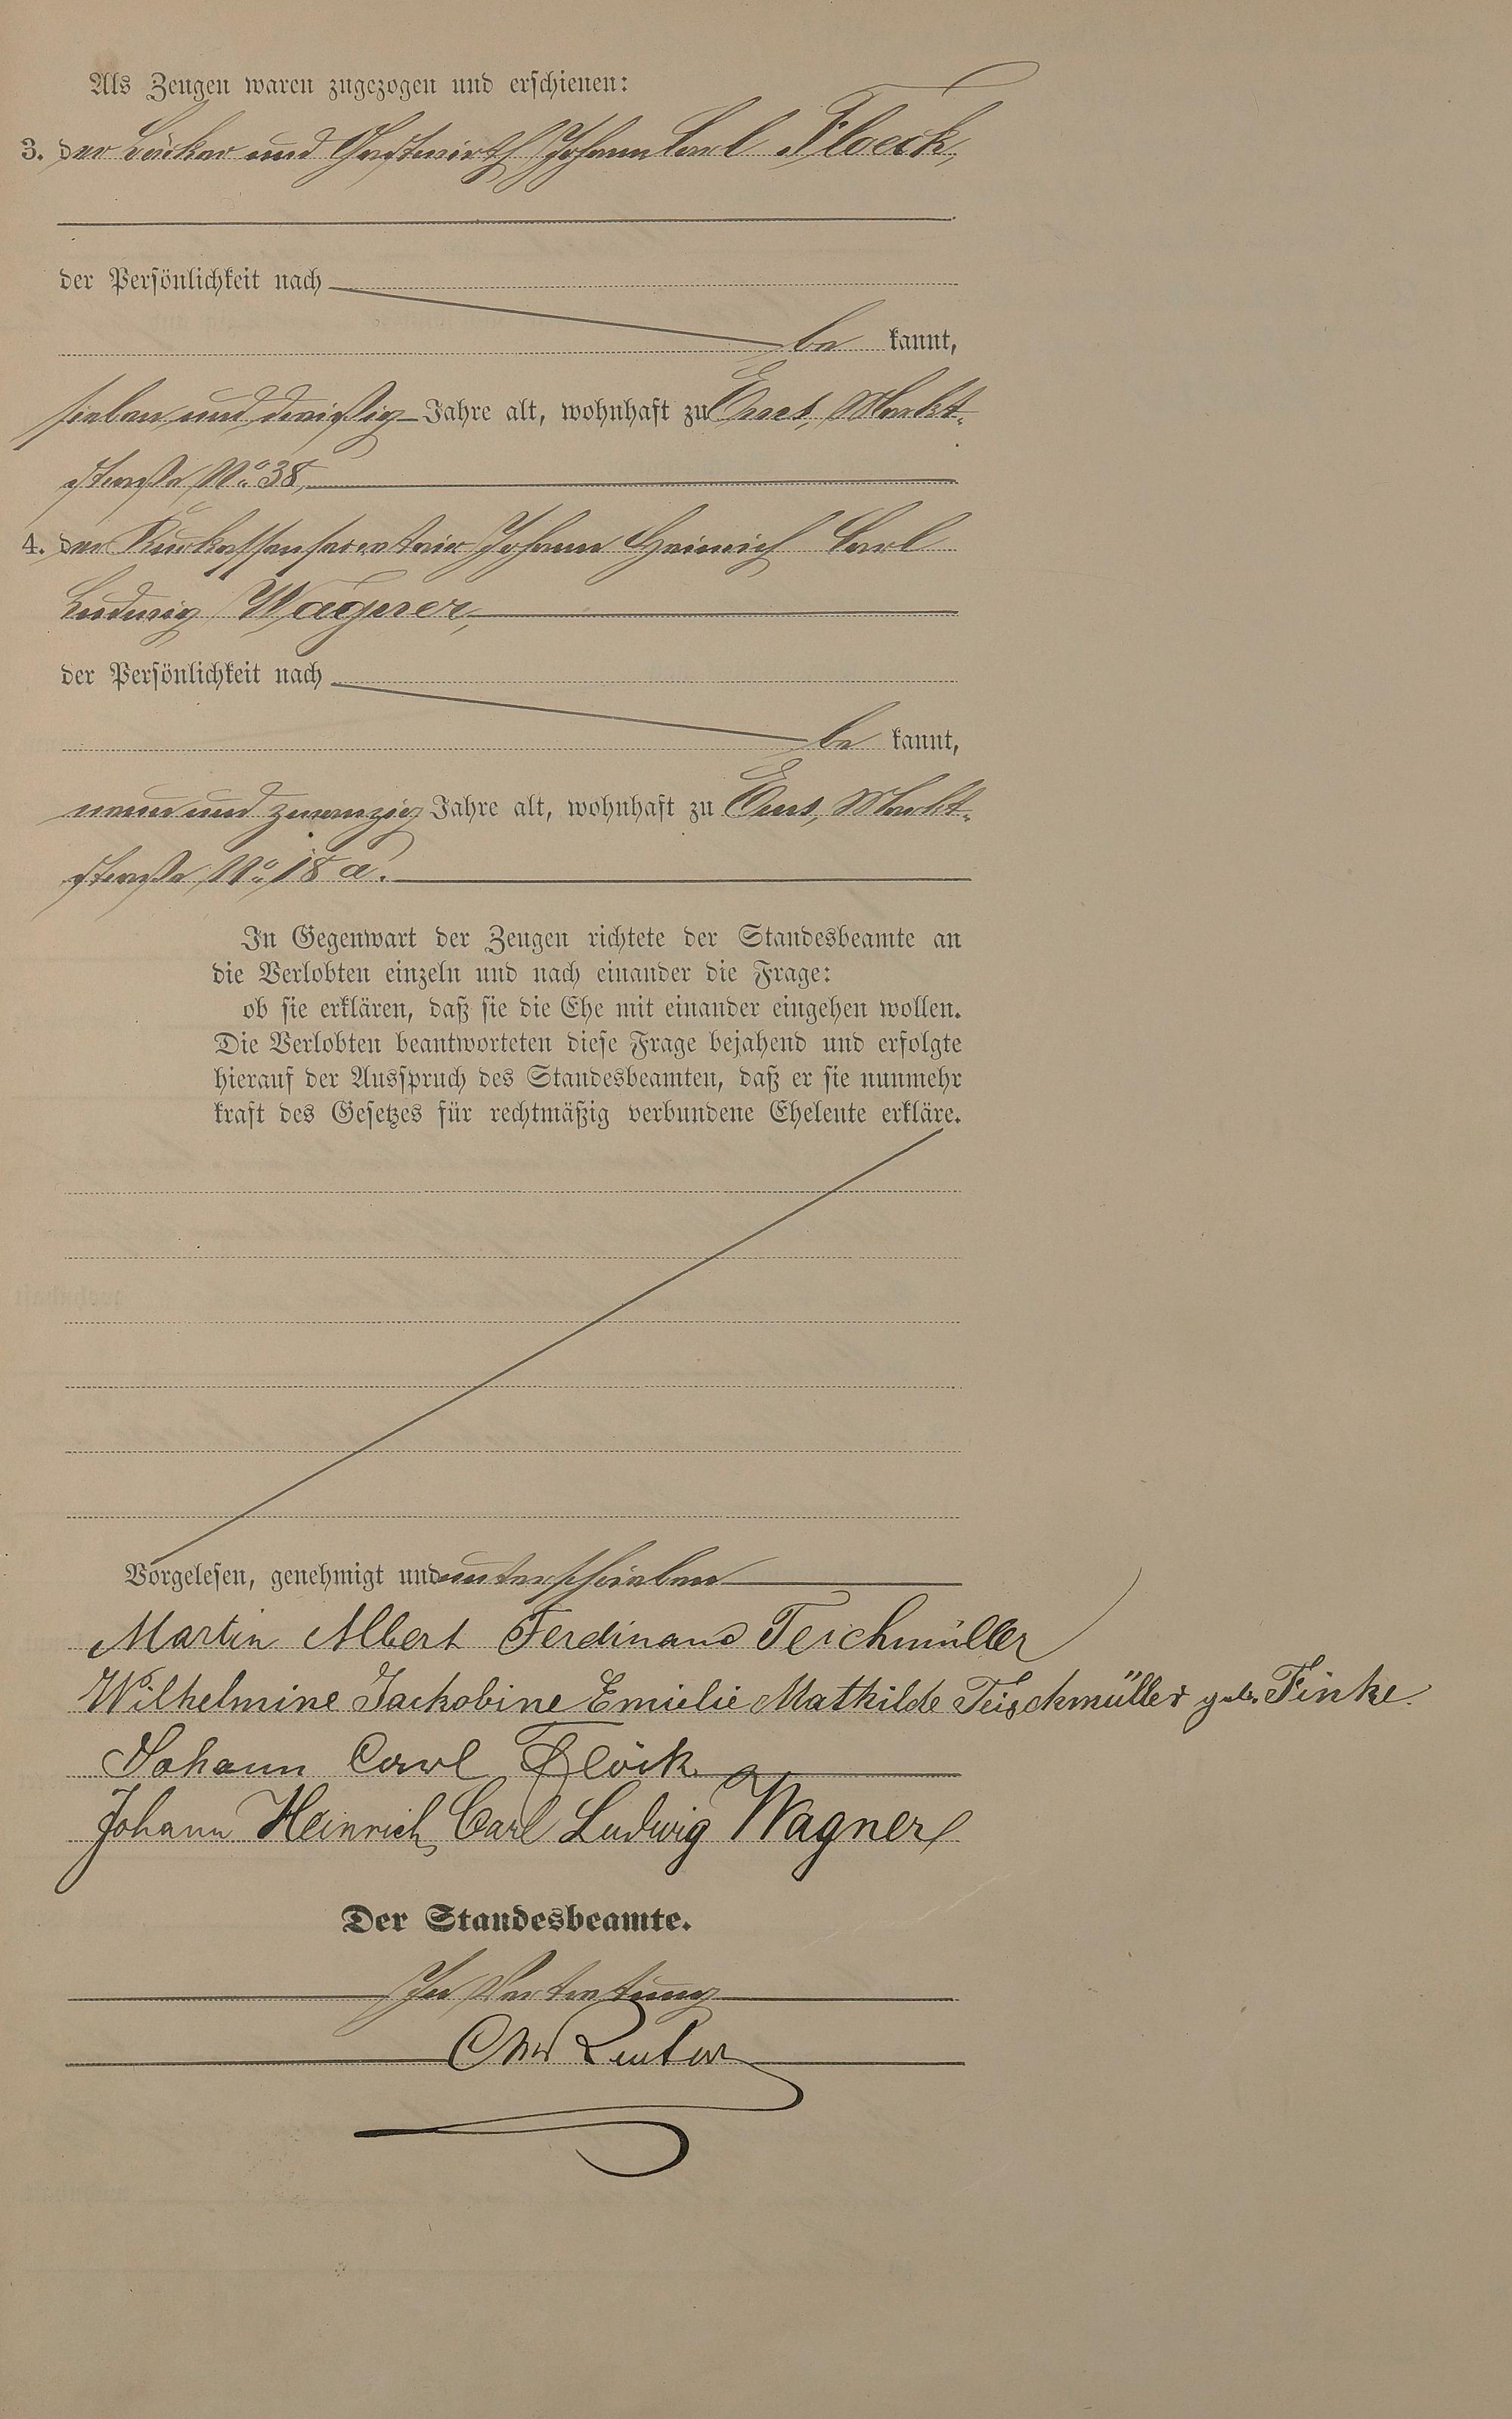 Als Zeugen waren zugezogen und erschienen:
3. der Bäcker und Gastwirth Johann Carl Floeck,
der Persönlichkeit nach
be kannt,
sieben und dreißig Jahre alt, wohnhaft zu Ems, Markt-
straße No. 38,
4. der Kurkassensecretair Johann Heinrich Carl
Ludwig Wagner,
der Persönlichkeit nach
be kannt,
neun und zwanzig Jahre alt, wohnhaft zu Ems, Markt-
straße No. 18 a.
In Gegenwart der Zeugen richtete der Standesbeamte an
die Verlobten einzeln und nach einander die Frage:
ob sie erklären, daß sie die Ehe mit einander eingehen wollen.
Die Verlobten beantworteten diese Frage bejahend und erfolgte
hierauf der Ausspruch des Standesbeamten, daß er sie nunmehr
kraft des Gesetzes für rechtmäßig verbundene Eheleute erkläre.
Vorgelesen, genehmigt und unterschrieben
Martin Albert Ferdinand Teichmüller
Wilhelmine Jackobine Emielie Mathilde Teischmüller geb. Finke
Johann Carl Flöck
Johann Heinrich Carl Ludwig Wagner
Der Standesbeamte.
In Vertretung
Reuter